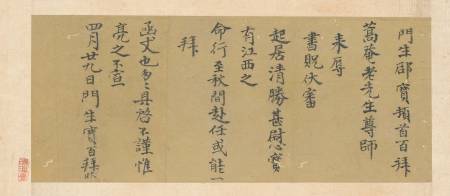 門生邵寶頓首百拜
菴老先生尊師
来辱
書貺伏審
起居清勝甚慰寶
有江西之
命行至秋間赴任或能一
拜
函丈也具啓不謹惟
亮之不宣
四月廿九日門生寶百拜